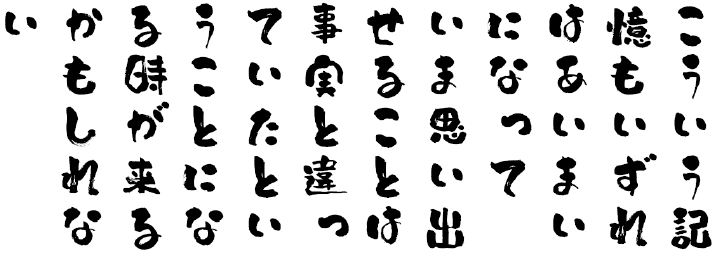 こういう記
憶もいずれ
はあいまい
になって
いま思い出
せることは
事実と違っ
ていたとい
うことにな
る時が来る
かもしれな
い